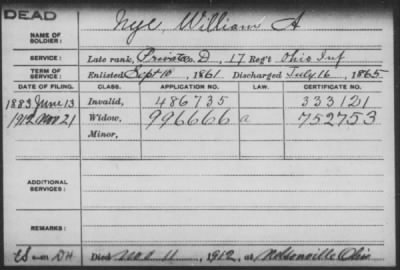 DEAD
NAME OF SOLDIER: Nye, William A
SERVICE: Late rank, Private Co D, 17 Reg't Ohio Inf
TERM OF SERVICE: Enlisted Sept 10, 1861 Discharged July 16, 1865
DATE OF FILING. CLASS. APPLICATION NO. LAW. CERTIFICATE NO.
1883 June 13 Invalid, 486735 333121
1912 Nov 21 Widow, 996666 a 752753
Minor,
ADDITIONAL SERVICES:
REMARKS:
Died 11, 1912, at Nelsonville Ohio